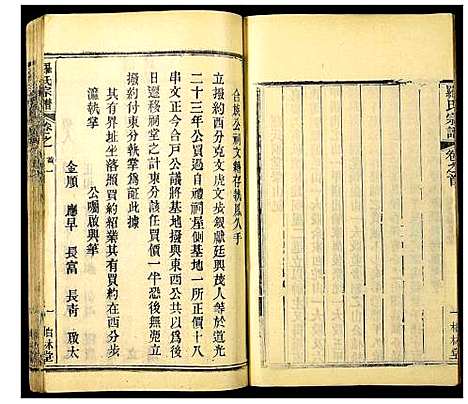 羅氏宗譜
卷之首
一
柏林堂
合族公祠文繩存執鳳久手
立撥約西分克文虎文步銀獻廷興茂人等於道光
二十三年公買過自禮祠屋側基地一所正價十八
串文正今合戶公議將基地撥與東西公共以爲後
日遷移祠堂之計東分該任買價一半恐後無憑立
撥約付東分執掌爲証此據
其有界址坐落照買約紹業其有買約在西分步
瀛執掌
公囑啟興華
金順 應早 長富 長青 啟太
羅氏宗譜
卷之首
一
柏林堂